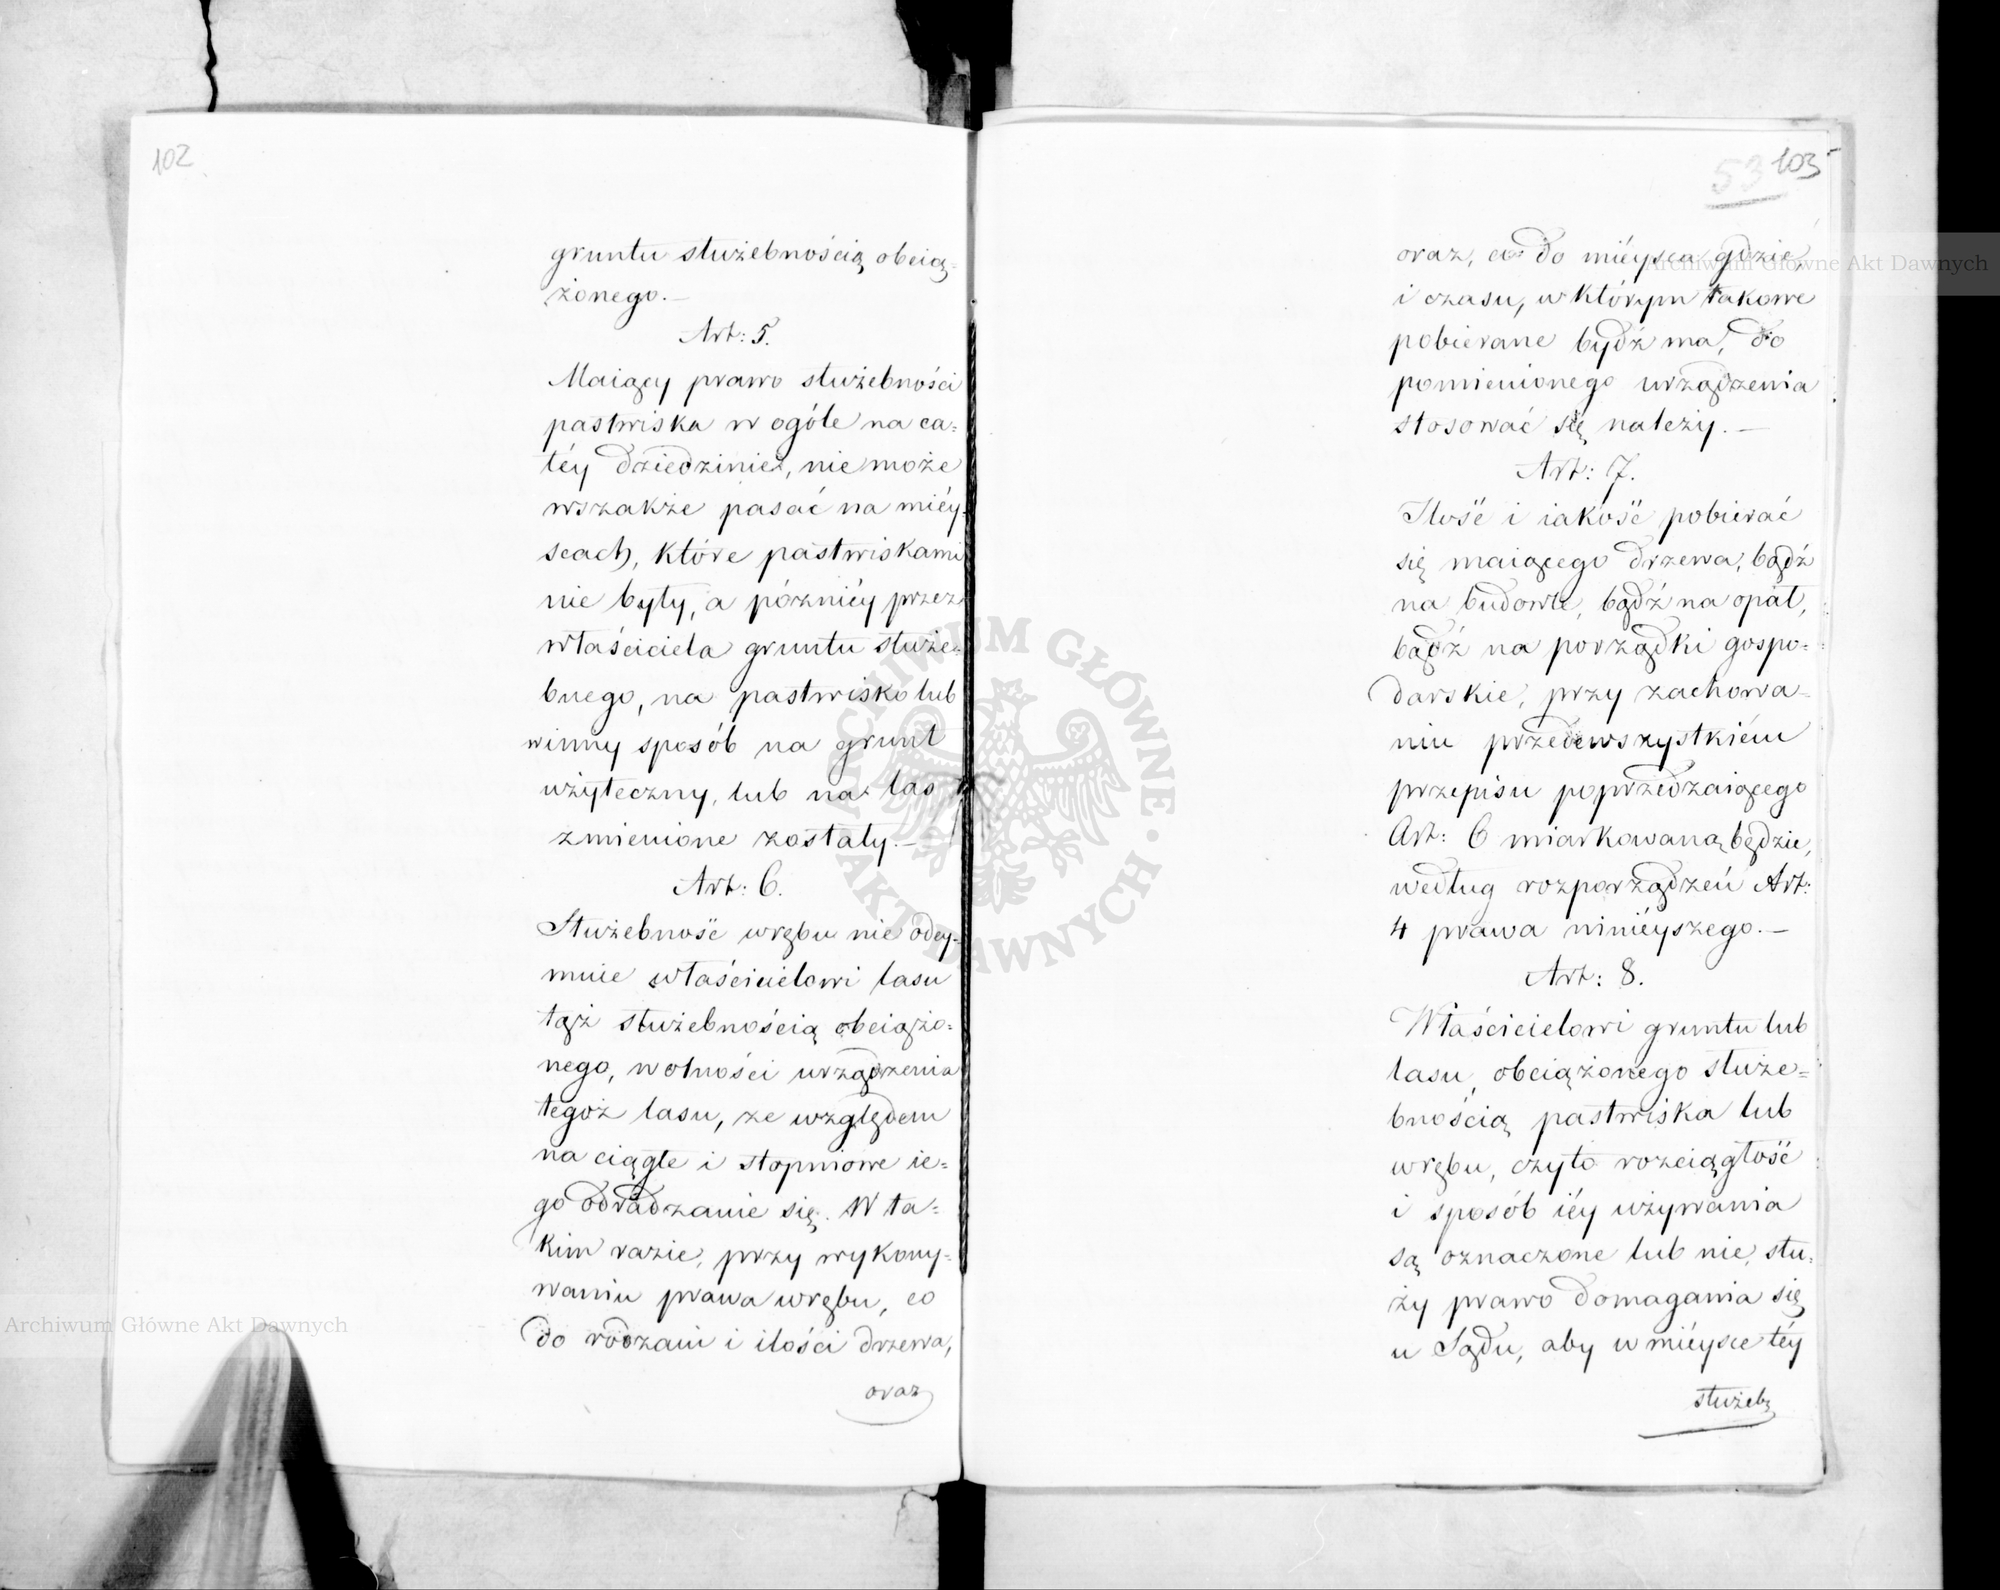 102
gruntu służebnością obcią-
żonego.—
Art: 5.
Maiący prawo służebności
pastwiska w ogóle na ca-
łéy dziedzinie, nie może
wszakże pasać na miéy-
scach, które pastwiskami
nie były, a późniéy przez
właściciela gruntu służe-
bnego, na pastwisko lub
w inny sposób na grunt
użyteczny, lub na las
zmienione zostały.—
Art: 6.
Służebność wrębu nie odey-
muie właścicielowi lasu
tąż służebnością obciążo-
nego, wolności urządzenia
tegoż lasu, ze względem
na ciągłe i stopniowe ie-
go odradzanie się. W ta-
kim razie, przy wykony-
waniu prawa wrębu, co
do rodzaiu i ilości drzewa,
oraz
53 103
oraz, co do miéysca gdzie,
i czasu, w którym takowe
pobierane bydź ma, do
pomienionego urządzenia
stosować się należy.—
Art: 7.
Ilość i iakość pobierać
się maiącego drzewa, bądź
na budowle, bądź na opał,
bądź na porządki gospo-
darskie, przy zachowa-
niu przedewszystkiém
przepisu poprzedzaiącego
Art: 6 miarkowaną będzie,
według rozporządzeń Art:
4 prawa ninieyszego.—
Art: 8.
Właścicielowi gruntu lub
lasu, obciążonego służe-
bnością pastwiska lub
wrębu, czyto rozciągłość
i sposób iéy używania
są oznaczone lub nie, słu-
ży prawo domagania się
u Sądu, aby w miéysce téy
służeb-
Archiwum Główne Akt Dawnych
Archiwum Główne Akt Dawnych
ARCHIWUM GŁÓWNE · AKT DAWNYCH ·